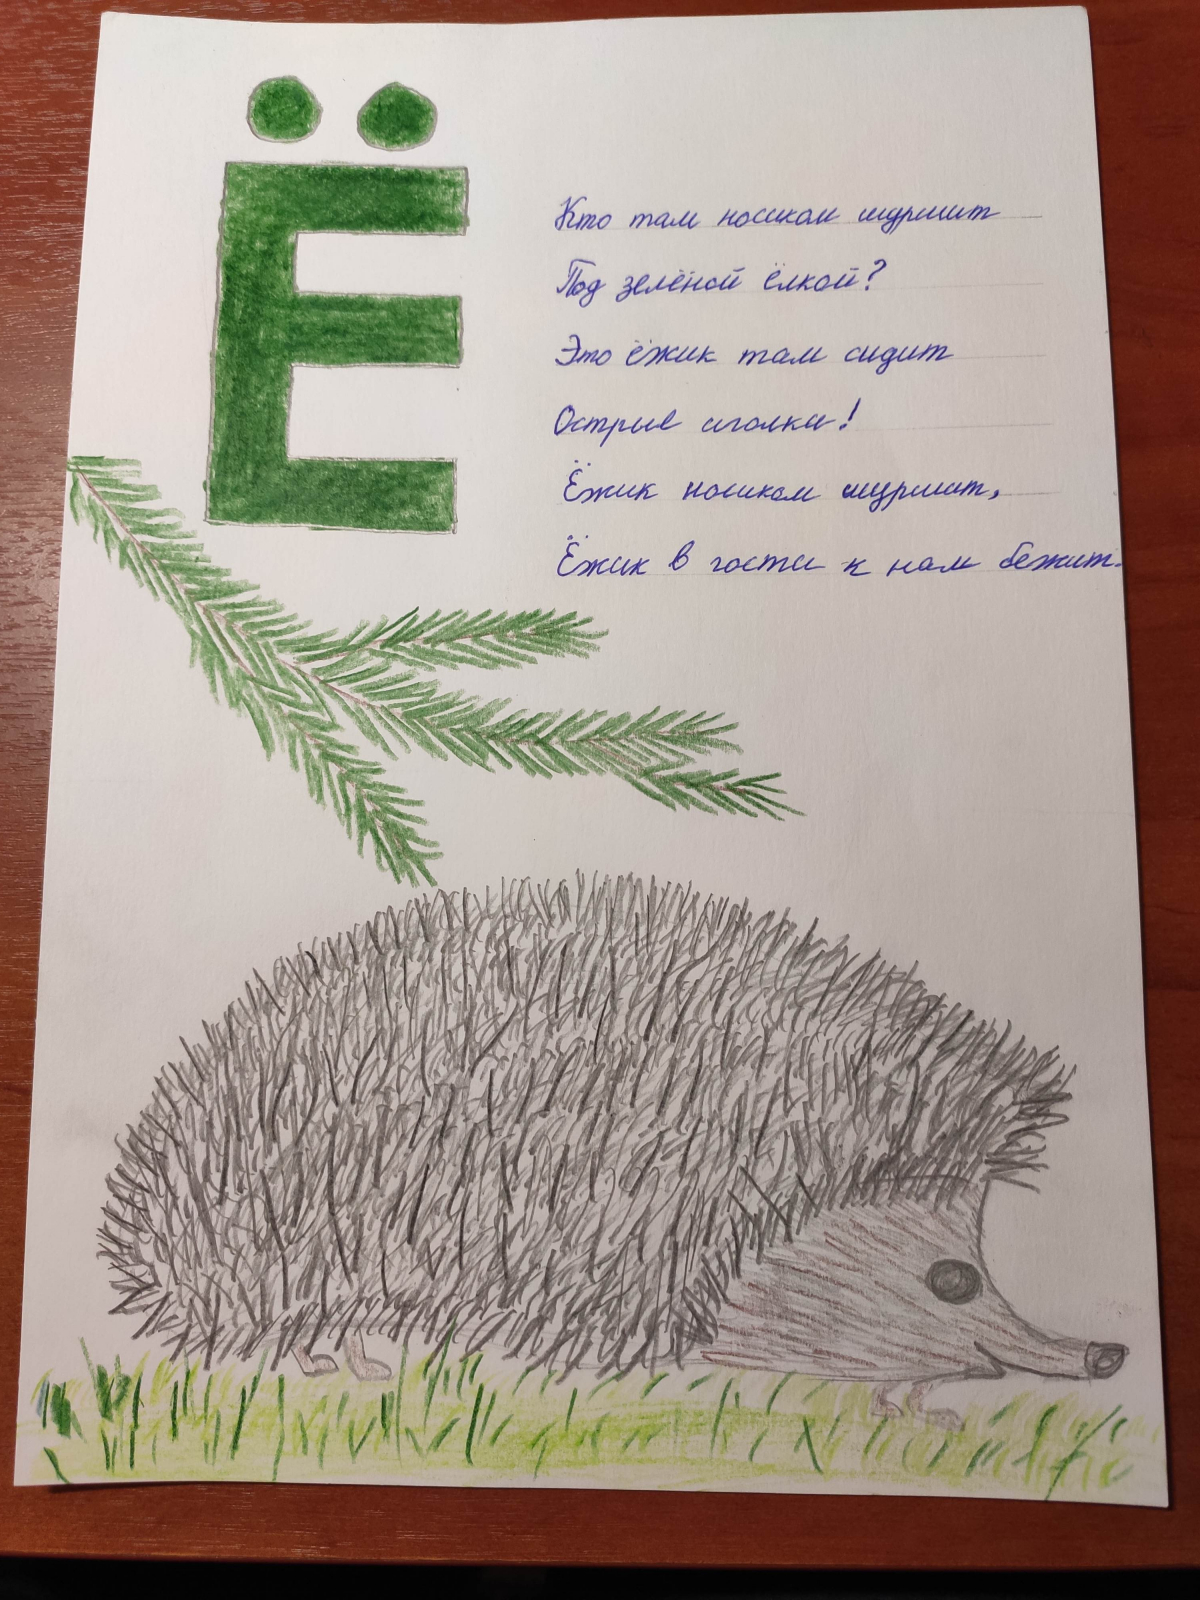 Ё
Кто там носиком шуршит
Под зелёной ёлкой?
Это ёжик там сидит
Острые иголки!
Ёжик носиком шуршит,
Ёжик в гости к нам бежит.